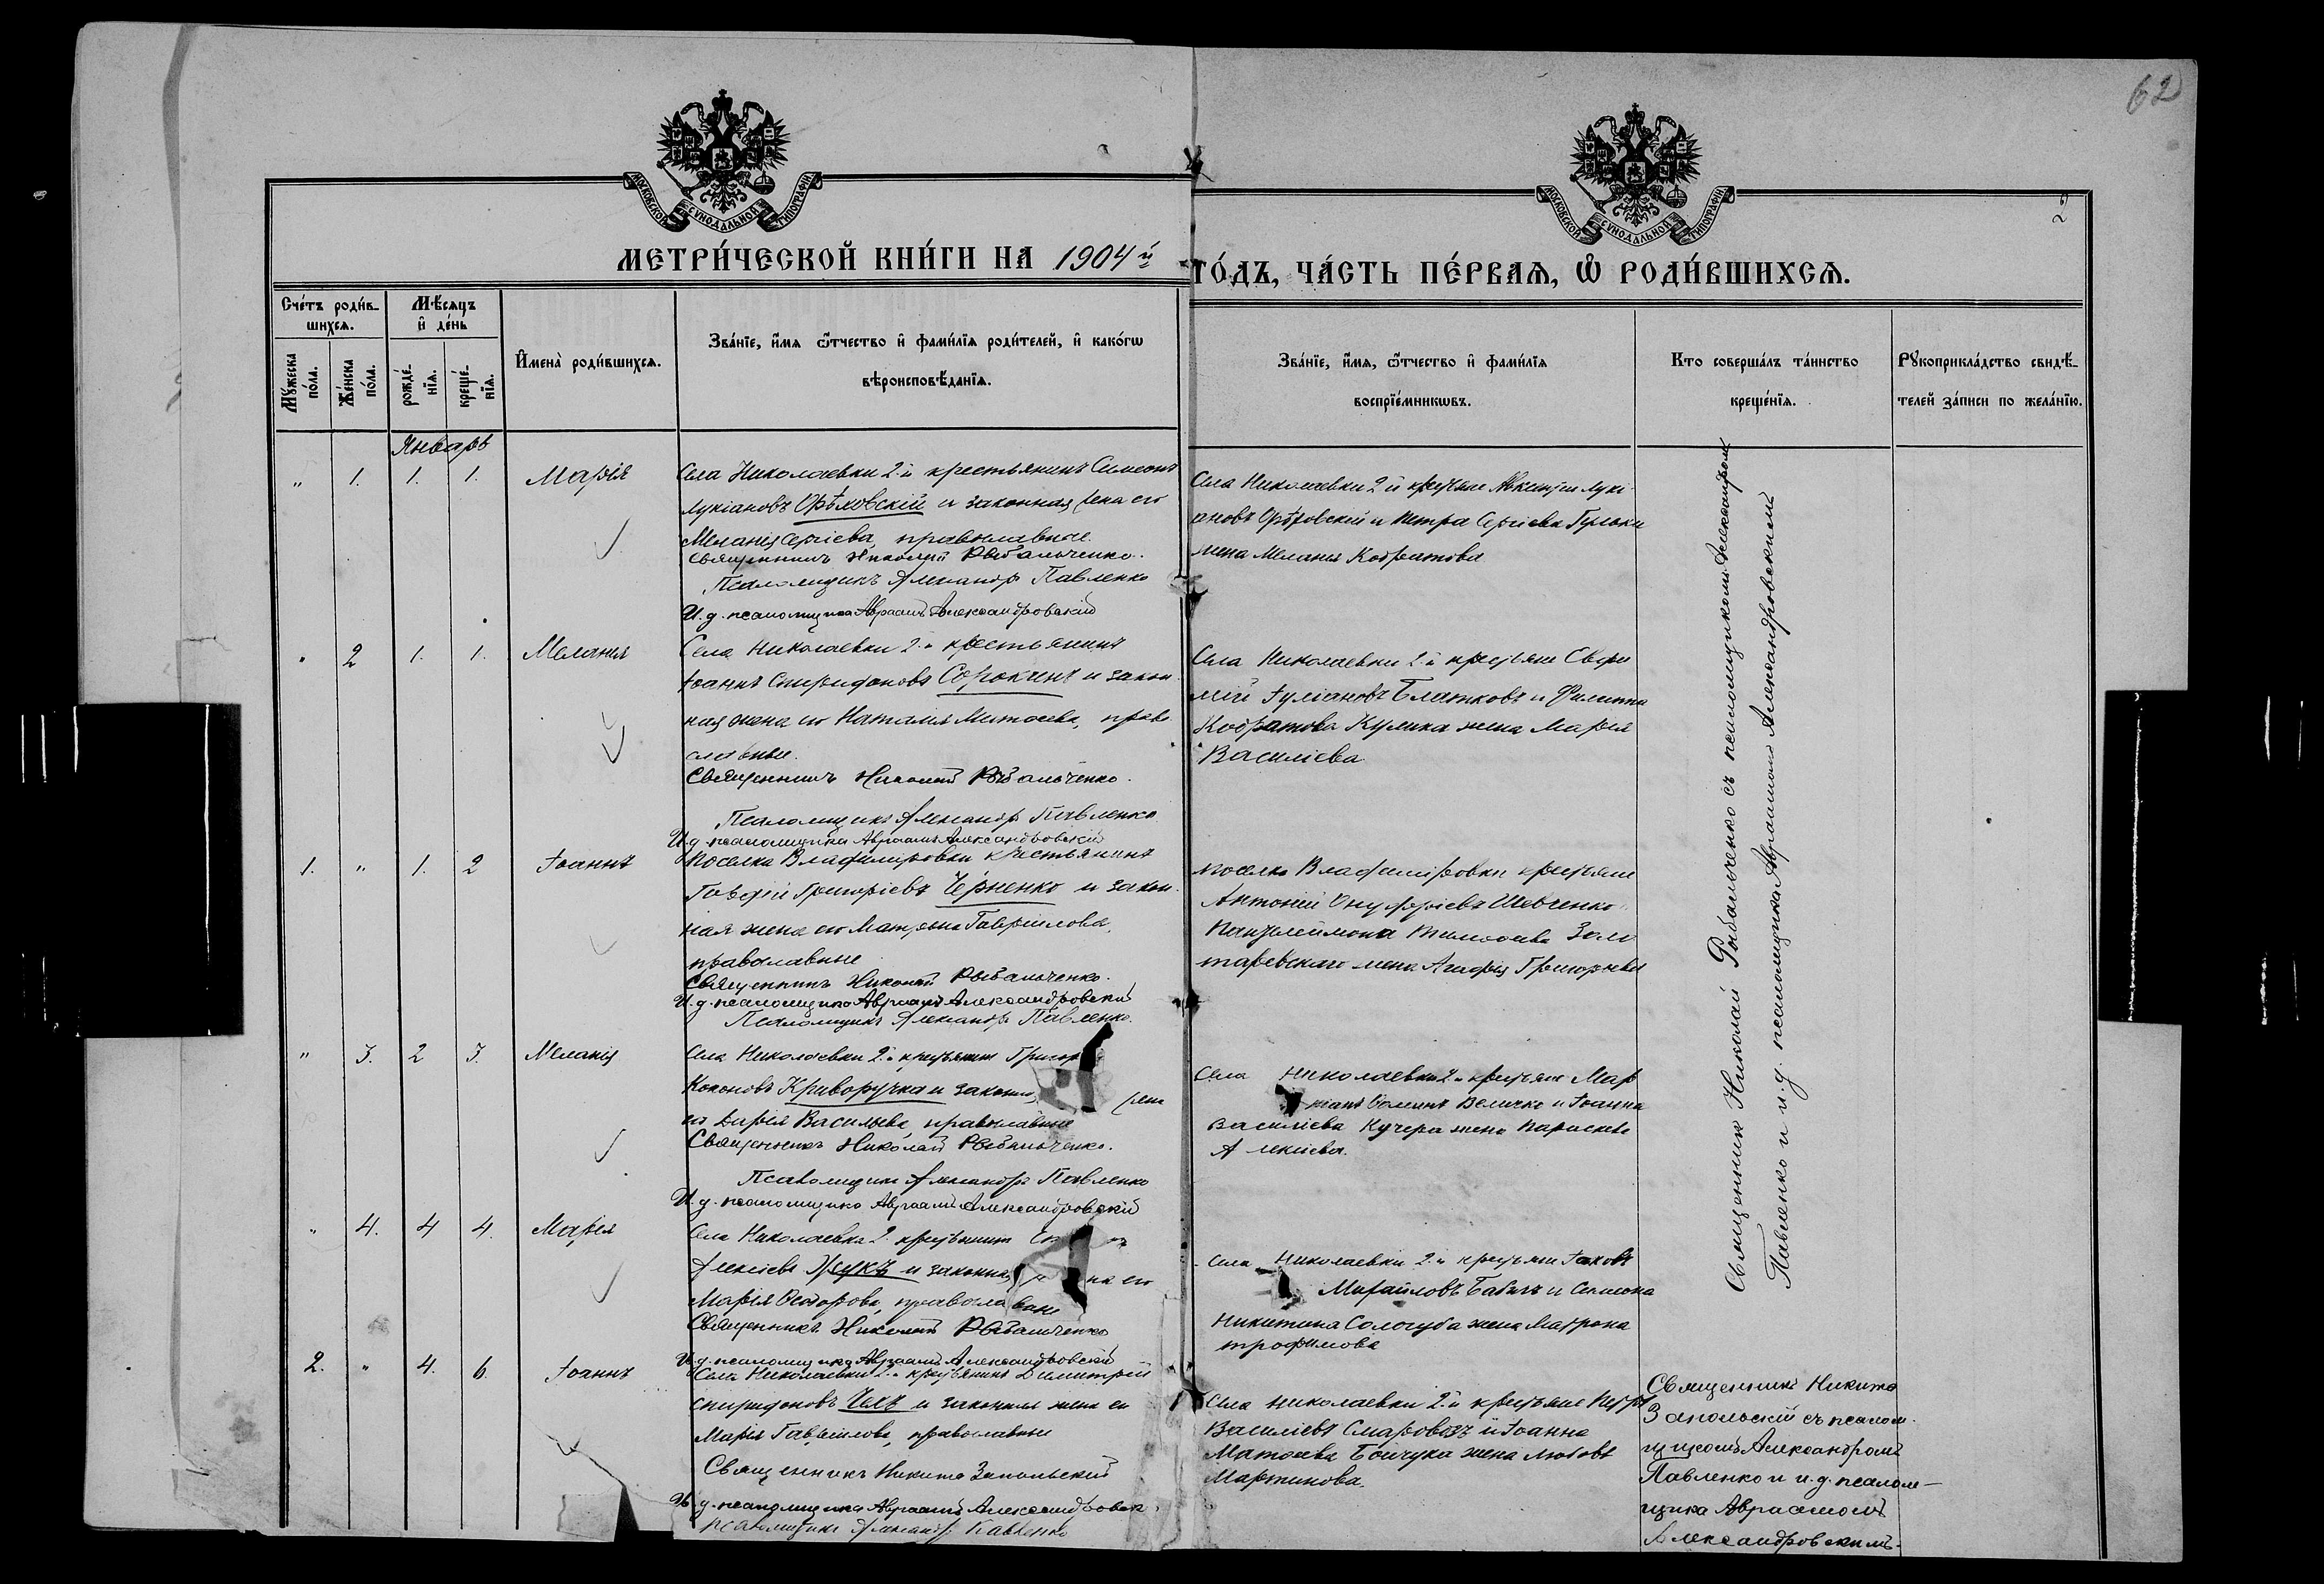 62
2
МОСКОВСКОЙ СУНОДАЛЬНОЙ ТИПОГРАФІИ
МОСКОВСКОЙ СУНОДАЛЬНОЙ ТИПОГРАФІИ
МЕТРИ́ЧЕСКОЙ КНИ́ГИ НА 1904й
ГО́ДЪ, ЧА́СТЬ ПЕ́РВАѦ, Ѽ РОДИ́ВШИХСѦ.
Сче́тъ роди́в-
шихсѧ.
Мѣ́сѧцъ
и҆ де́нь
Му́жеска
по́ла.
Же́нска
по́ла.
рожде́-
нїѧ.
креще́-
нїѧ.
И҆мена̀ роди́вшихсѧ.
Зва́нїе, и҆́мѧ ѻ҆́тчество и҆ фами́лїѧ роди́телей, и҆ како́гѡ
вѣроисповѣ́данїѧ.
Зва́нїе, и҆́мѧ, ѻ҆́тчество и҆ фами́лїѧ
воспрїе́мникѡвъ.
Кто соверша́лъ та́инство
креще́нїѧ.
Рꙋкоприкла́дство свидѣ́-
телей за́писи по жела́нїю.
Январь
" 1. 1. 1. Марія
Села Николаевки 2-й крестьянинъ Симеонъ
Лукіановъ Орѣловскій и законная жена его
Меланія Сергіева, православные.
Священникъ Николай Рыбальченко.
Псаломщикъ Александръ Павленко
И. д. псаломщика Авраамъ Александровскій
Села Николаевки 2 й крестьяне Лукі
ановъ Орѣловскій и Петра Сергіева
жена Меланія Кодратова
" 2 1. 1. Меланія
Села Николаевки 2-й крестьянинъ
Іоаннъ Спиридоновъ Сорокинъ и закон
ная жена его Наталія Матѳеева, право
славные.
Священникъ Николай Рыбальченко.
Псаломщикъ Александръ Павленко
И. д. псаломщика Авраамъ Александровскій
Села Николаевки 2-й крестьяне
Іуліановъ и Филиппа
Кодратова Кулика жена Марія
Василіева.
1. " 1. 2 Іоаннъ
поселка Владимировки крестьянинъ
Гордій Григоріевъ Черненко и закон
ная жена его Матрона Гавриилова,
православные
Священникъ Николай Рыбальченко.
И. д. псаломщика Авраамъ Александровскій
Псаломщикъ Александръ Павленко.
поселка Владимировки крестьяне
Антоній Онуфріевъ Шевченко и
Пантелеймона Тимоѳеева Золо
таревскаго жена Агафія Григорьева
" 3. 2 3. Меланія
Села Николаевки 2-й крестьянинъ Григор
Кононовъ Криворучка и законн жена
его Дарія Васильева, православные
Священникъ Николай Рыбальченко.
Псаломщикъ Александръ Павленко
И. д. псаломщика Авраамъ Александровскій
Села Николаевки 2-й крестьяне Мар
кіанъ Ѳоминъ Величко и Іоанна
Василіева Кучера жена Параскева
Алексіева.
" 4. 4 4. Марія
Села Николаевки 2-й крестьянинъ
Алексіевъ Жукъ и законная жена его
Марія Ѳеодорова, православные
Священникъ Николай Рыбальченко
И. д. псаломщика Авраамъ Александровскій
Села Николаевки 2-й крестьяне Іаковъ
Михайловъ Бабичъ и Симеона
Никитина Сологуба жена Матрона
Трофимова
Священникъ Николай Рыбальченко съ псаломщикомъ Александромъ
Павленко и и. д. псаломщика Авраамомъ Александровскимъ
2. " 4. 6. Іоаннъ
Села Николаевки 2-й крестьянинъ Димитрій
Спиридоновъ и законная жена его
Марія Гавриилова, православные
Священникъ Никита Запольскій
И. д. псаломщика Авраамъ Александровск.
Псаломщикъ Александръ Павленко
Села Николаевки 2-й крестьяне Петръ
Василіевъ Смаровозъ и Іоанна
Матѳеева Бойчука жена Любовь
Мартинова.
Священникъ Никита
Запольскій съ псалом-
щикомъ Александромъ
Павленко и и. д. псалом-
щика Авраамомъ
Александровскимъ.